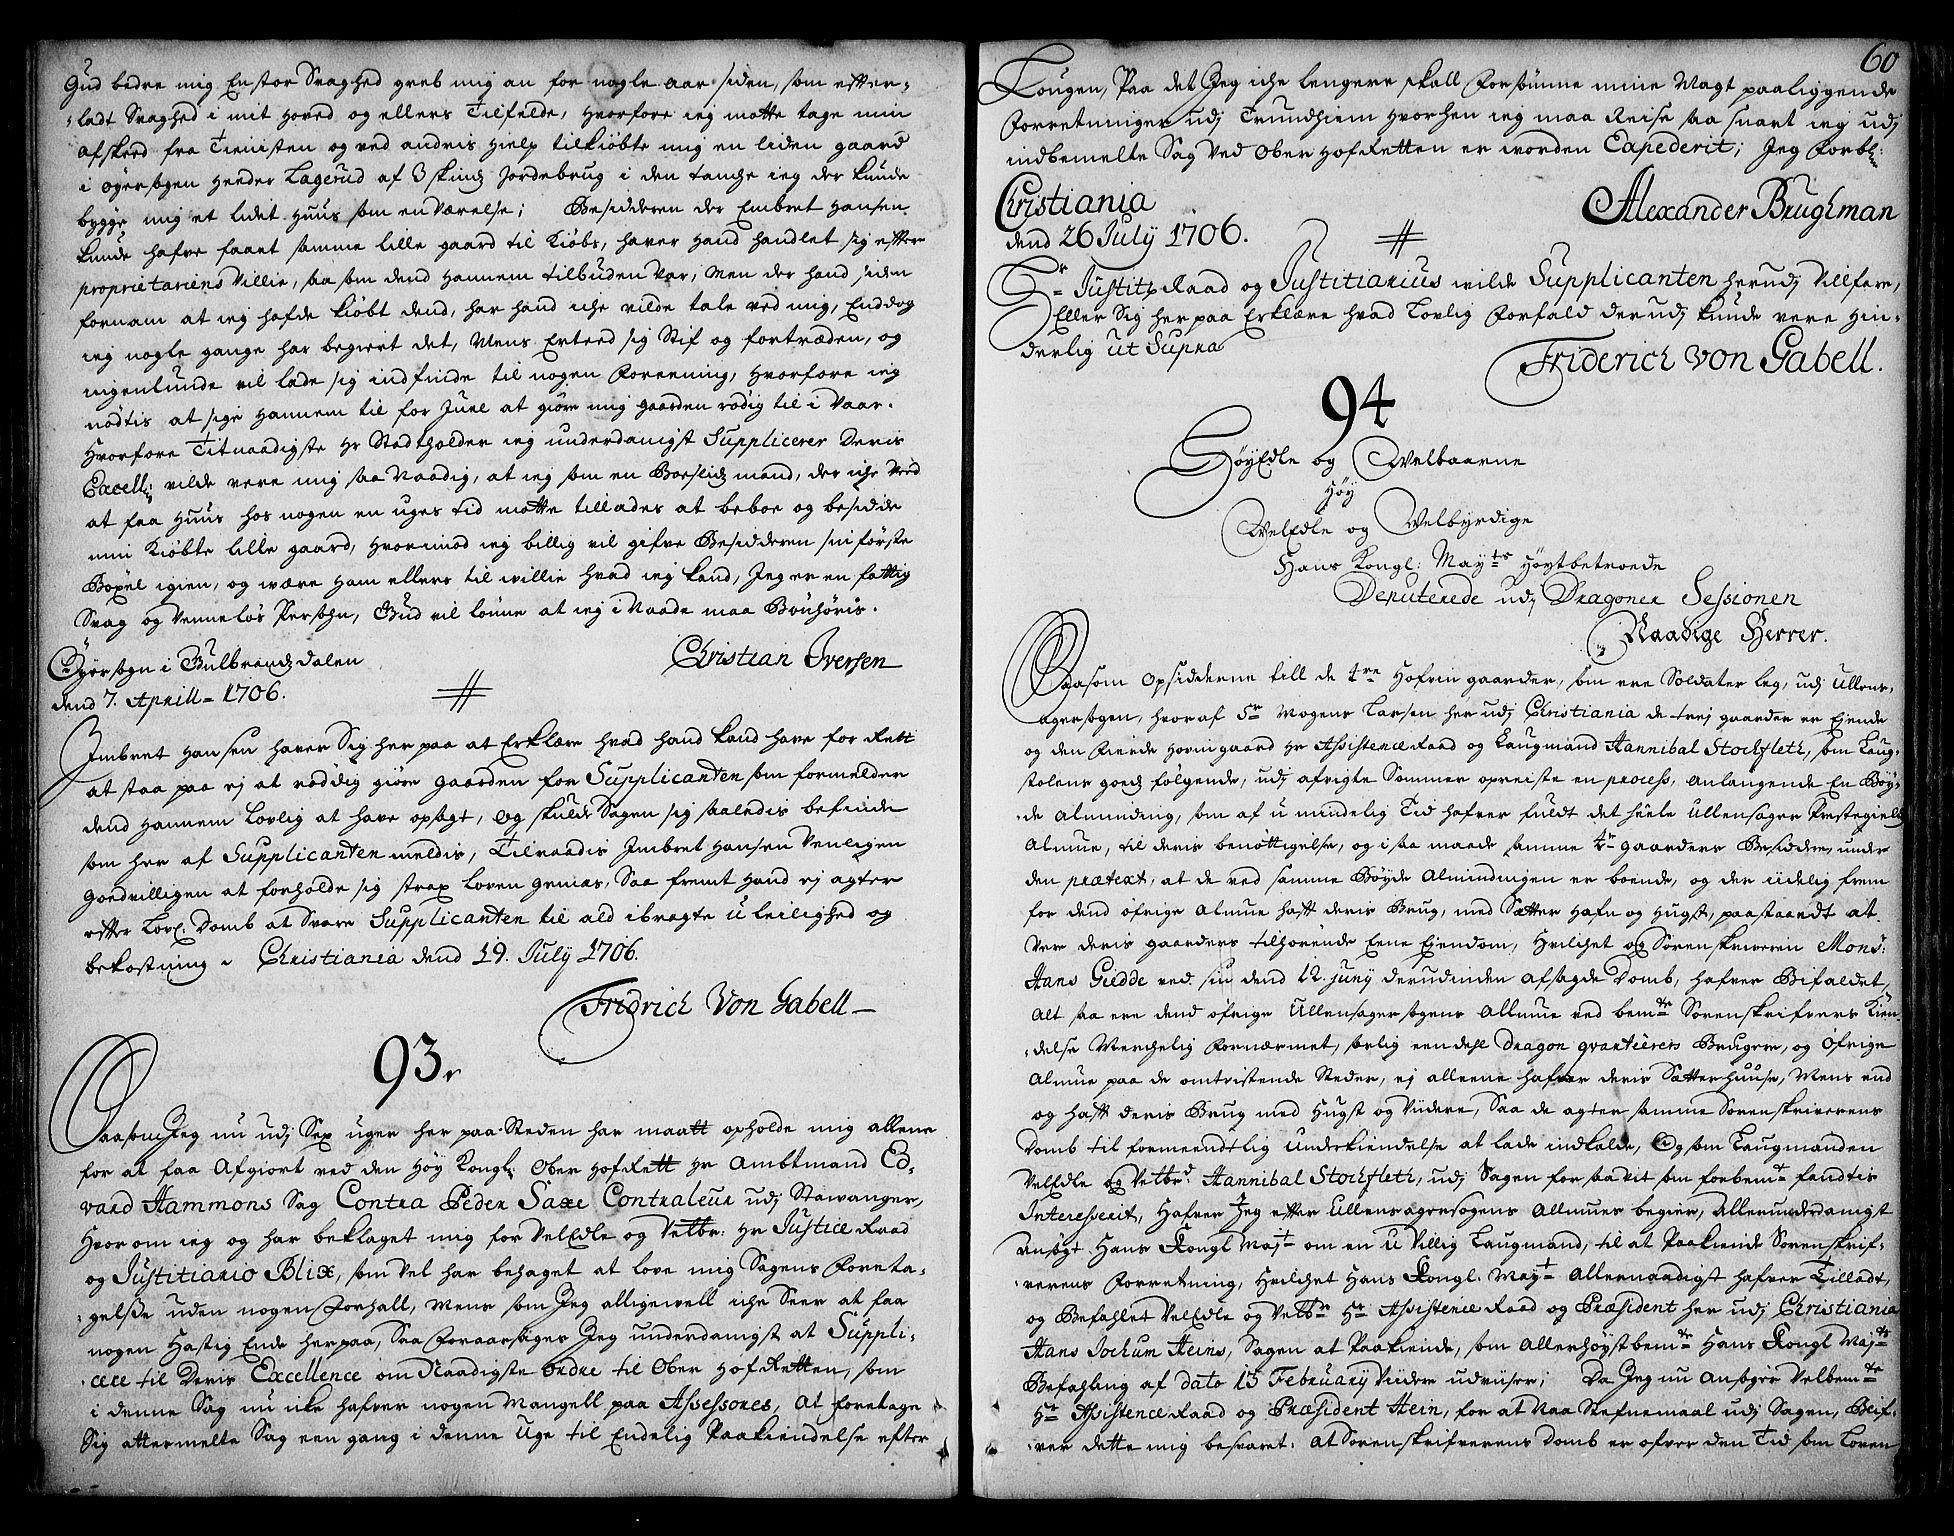 Gud bedre mig En stor Svaghed greb mig an for nogle aar siden, som effter-
ladt Svaghed i mit Hoved og ellers Tilfelde, hvorfore ieg motte tage min
afskeed fra Tienisten og ved andris Hielp tilkiøbte mig en liden gaard
i øyersogen heeder Lagerud af 3 skind Jordebrug i den tanche ieg der kunde
bygge mig et lidet Huus som en Værelse; Besidderen der Embret Hansen
kunde hafve faaet samme lille gaard til Kiøbs, haver Hand handlet sig effter
proprietariens Villie, saa som dend Hannem tilbuden var, Men der hand siden
fornam at ieg hafde kiøbt dend, har hand iche vilde tale ved mig, Enddog
ieg nogle gange har begiert det, Mens Erteed sig Stif og fortræden, og
ingenlunde vil lade sig indfinde til nogen Foreening, Hvorfore ieg
nödtis at sige Hannem til for Juul at giøre mig gaarden rödig til i Vaar.
Hvorfore Titnaadigste Hr Stadtholder ieg underdanigst Supplicerer Deris
Excell: vilde vere mig saa Naadig, at ieg som en Boeslid mand, der iche veed
at faa Huus hos nogen en uges tid motte tillades at beboe og besidde
min Kiøbte lille gaard, Hvorimod ieg billig vil gifve Besidderen sin förste
Böxel igien, og være Ham ellers til willie hvad ieg kand, Jeg er en fattig
Svag og Venneløs Persohn, Gud vil lönne at ieg i Naade maa Bönhöris.
Öyersogn i Gulbrandsdalen Christian Iversen
dend 7. Aprill 1706.
Imbret Hansen haver Sig her paa at Erklære hvad hand kand have for Rett
at staa paa ej at röddig giöre gaarden for Supplicanten som formelder
dend Hannem Lovlig at have opsagt, og skulde Sagen sig saaledis befinde
som her af Supplicanten meldis, Tilraadis Imbret Hansen Venligen
Goedvilligen at forholde sig strax Loven gemæs, Saa fremt Hand ej agter
effter Lovl. Domb at Svare Supplicanten til ald ibragte uleilighed og
bekostning. Christiania dend 19. July 1706.
Fridrich Von Gabell
93.
Saasom Jeg nu udj Sex uger her paa Steden har maatt opholde mig allene
for at faa Afgiort ved den Höy Kongl: Ober Hof Rett Hr Ambtmand Ed-
vard Hammons Sag Contra Peder Saxe Contraleur udj Stawanger,
Hvor om ieg og har beklaget mig for VelEdle og Velbr: Hr Justice Raad
og Justitiario Blix, som Vel har behaget at love mig Sagens Foreta-
gelße uden nogen Forhall, Mens som Jeg alligewell iche Seer at faa
nogen Hastig Ende her paa, Saa Foraarsages Jeg underdanigst at Suppli-
cere til Deris Excellence om Naadigste Ordre til Ober Hof Retten, som
i denne Sag nu icke hafver nogen Mangell paa Assessores, At foretage
Sig attermelte Sag een gang i denne Uge til Endelig Paakiendelse effter
60
Lougen, Paa det Jeg iche lengere skall Forsömme mine Magt paaliggende
Forretninger udj Trundhiem Hvorhen ieg maa Reise saa snart ieg udj
indbemelte Sag Ved Ober Hof Retten er worden Expederit; Jeg Forbl:
Christiania Alexander Brughman
dend 26 July 1706.
Hr Justitz Raad og Justitiarius wilde Supplicanten herudj Villfare,
Eller Sig her paa Erklære hvad Lovlig Forfald derudj kunde vere Hin-
derlig ut Supra
Friderich von Gabell.
94
HöyEdle og Welbaarne
Höy
WelEdle og Velbyrdige
Hans Kongl: Mayts Höytbetroede
Deputerede udj Dragoner Sessionen
Naadige Herrer.
Saasom Opsidderne till de 4re Hofvin gaarder, som ere Soldater leg, udj Ullens-
agersogen, hvor af Sr Mogens Larsen her udj Christiania de trej gaarder er Ejende
og den Fierde Hovingaard Hr Assistence Raad og Laugmand Hannibal Stockfleth, som Laug-
stolens goeds følgende, udj afvigte Sommer opreiste en process, anlangende En Böy-
de Alminding, som af u mindelig Tid hafver fuldt det heele Ullensager Prestegields
Almue, til deris benöttigelse, og i saa maade samme 4re gaarders Besiddere, under
den prætext, at de ved samme Böyde Almindingen er boende, og der iidelig frem
for dend öfrige Almue hafft deris Brug, med Sætter Hafn og Hugst, paastaandt at
Vere deris gaarders tilhörende Eene Ejendom, Hvilchet og Sorenskriverin Mons:
Hans Giedde ved sin dend 12. juny derudinden afsagde Domb, hafver Bifaldet,
Alt saa ere dend öfrige Ullensagersogens Allmue ved bemte Sorenskrifvers Kien-
delse Merchelig Fornærmet, sælig een dehl Dragon qvarteerers Brugere, og Öfrige
Almue paa de omtvistende Steder, ej alleene hafver deris Sætterhuuse, Mens end
og hafft deris Brug med Hugst og Viidere, Saa de agter samme Sorenskriverens
Domb til formeendtlig Underkiendelse at lade indkalde, Og som Laugmanden
VelEdle og Velbrd. Hannibal Stockfleth, udj Sagen for saa vit som forbemt fandtis
Interesserit, Hafver Jeg effter Ullensagersogens Allmues begier, allerunderdanigst
Ansögt Hans Kongl Mayt om en U villig Laugmand, til at Paakiende Sorenskrif-
verens Forretning, Hvilchet Hans Kongl. Mayt Allernaadigst hafver Tilladt,
og Befahlet VelEdle og Velbr Hr Assistence Raad og Præsident her udj Christiania
Hans Jochum Heins, Sagen at Paakiende, som Allerhöystbemte Hans Kongl Mayts
Befahling af dato 15 February Viidere udviiser; Da Jeg nu Ansöger Velbemte
Hr Assistence Raad og Præsident Hein, for at Naa Stefnemaal udj Sagen, Blif-
ver dette mig besvaret: At Sorenskrifverens Domb er ofver den Tid som Loven